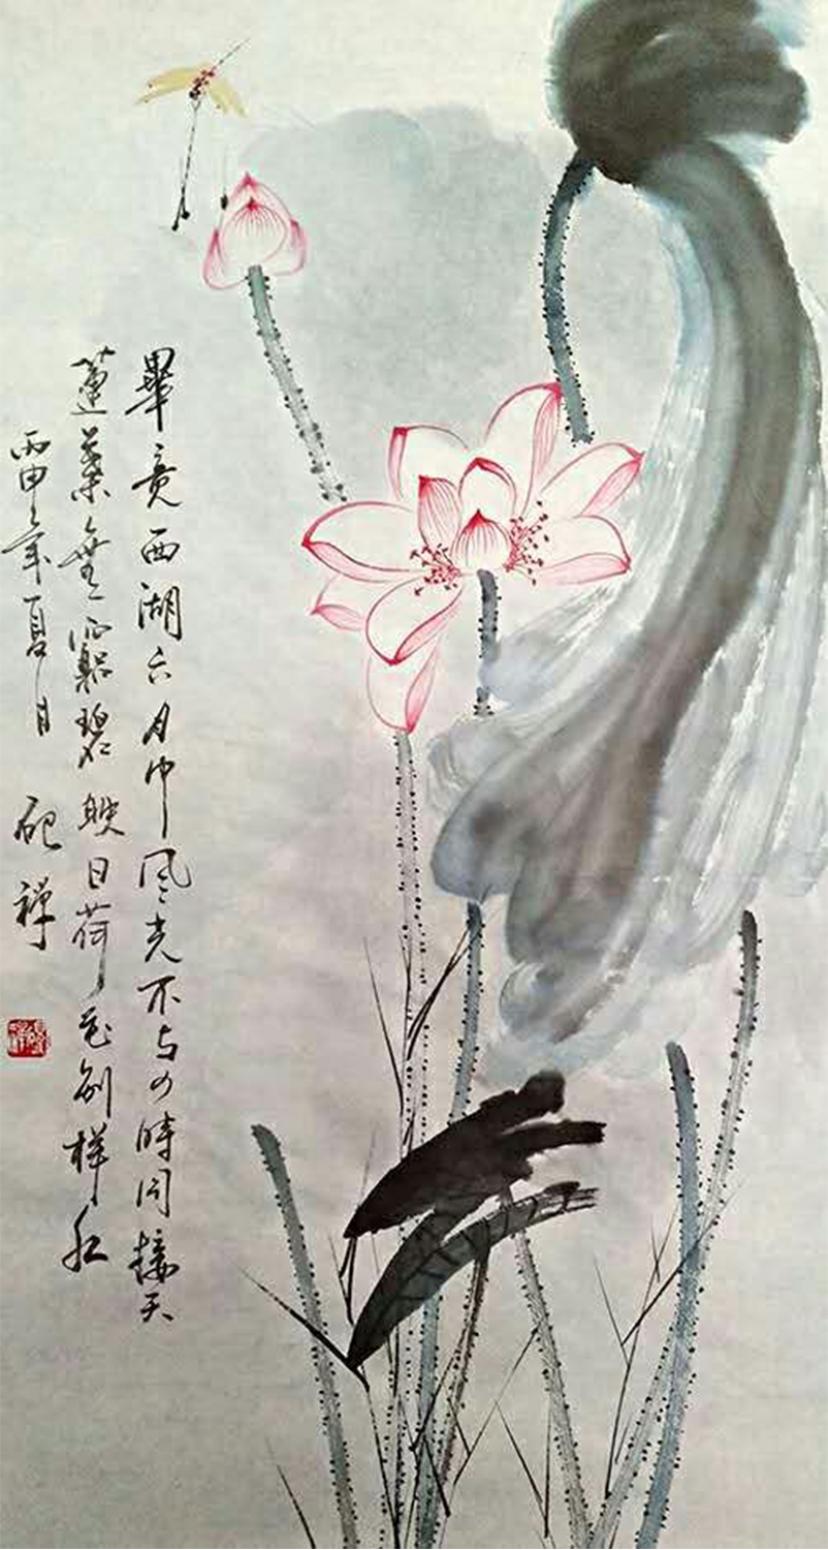 畢竟西湖六月中风光不与四时同接天
蓮葉無窮碧映日荷花别样红
丙申年夏月 砚禅